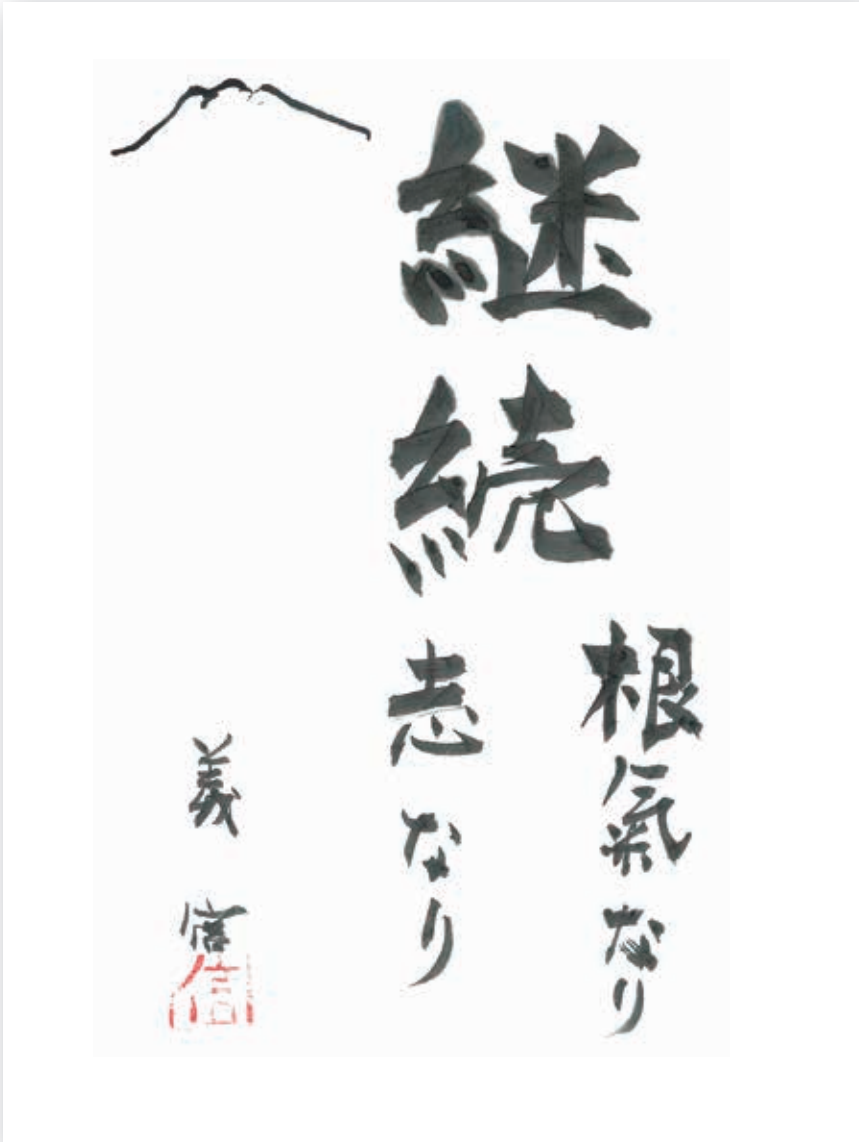 継続
根氣なり
志なり
義信
信